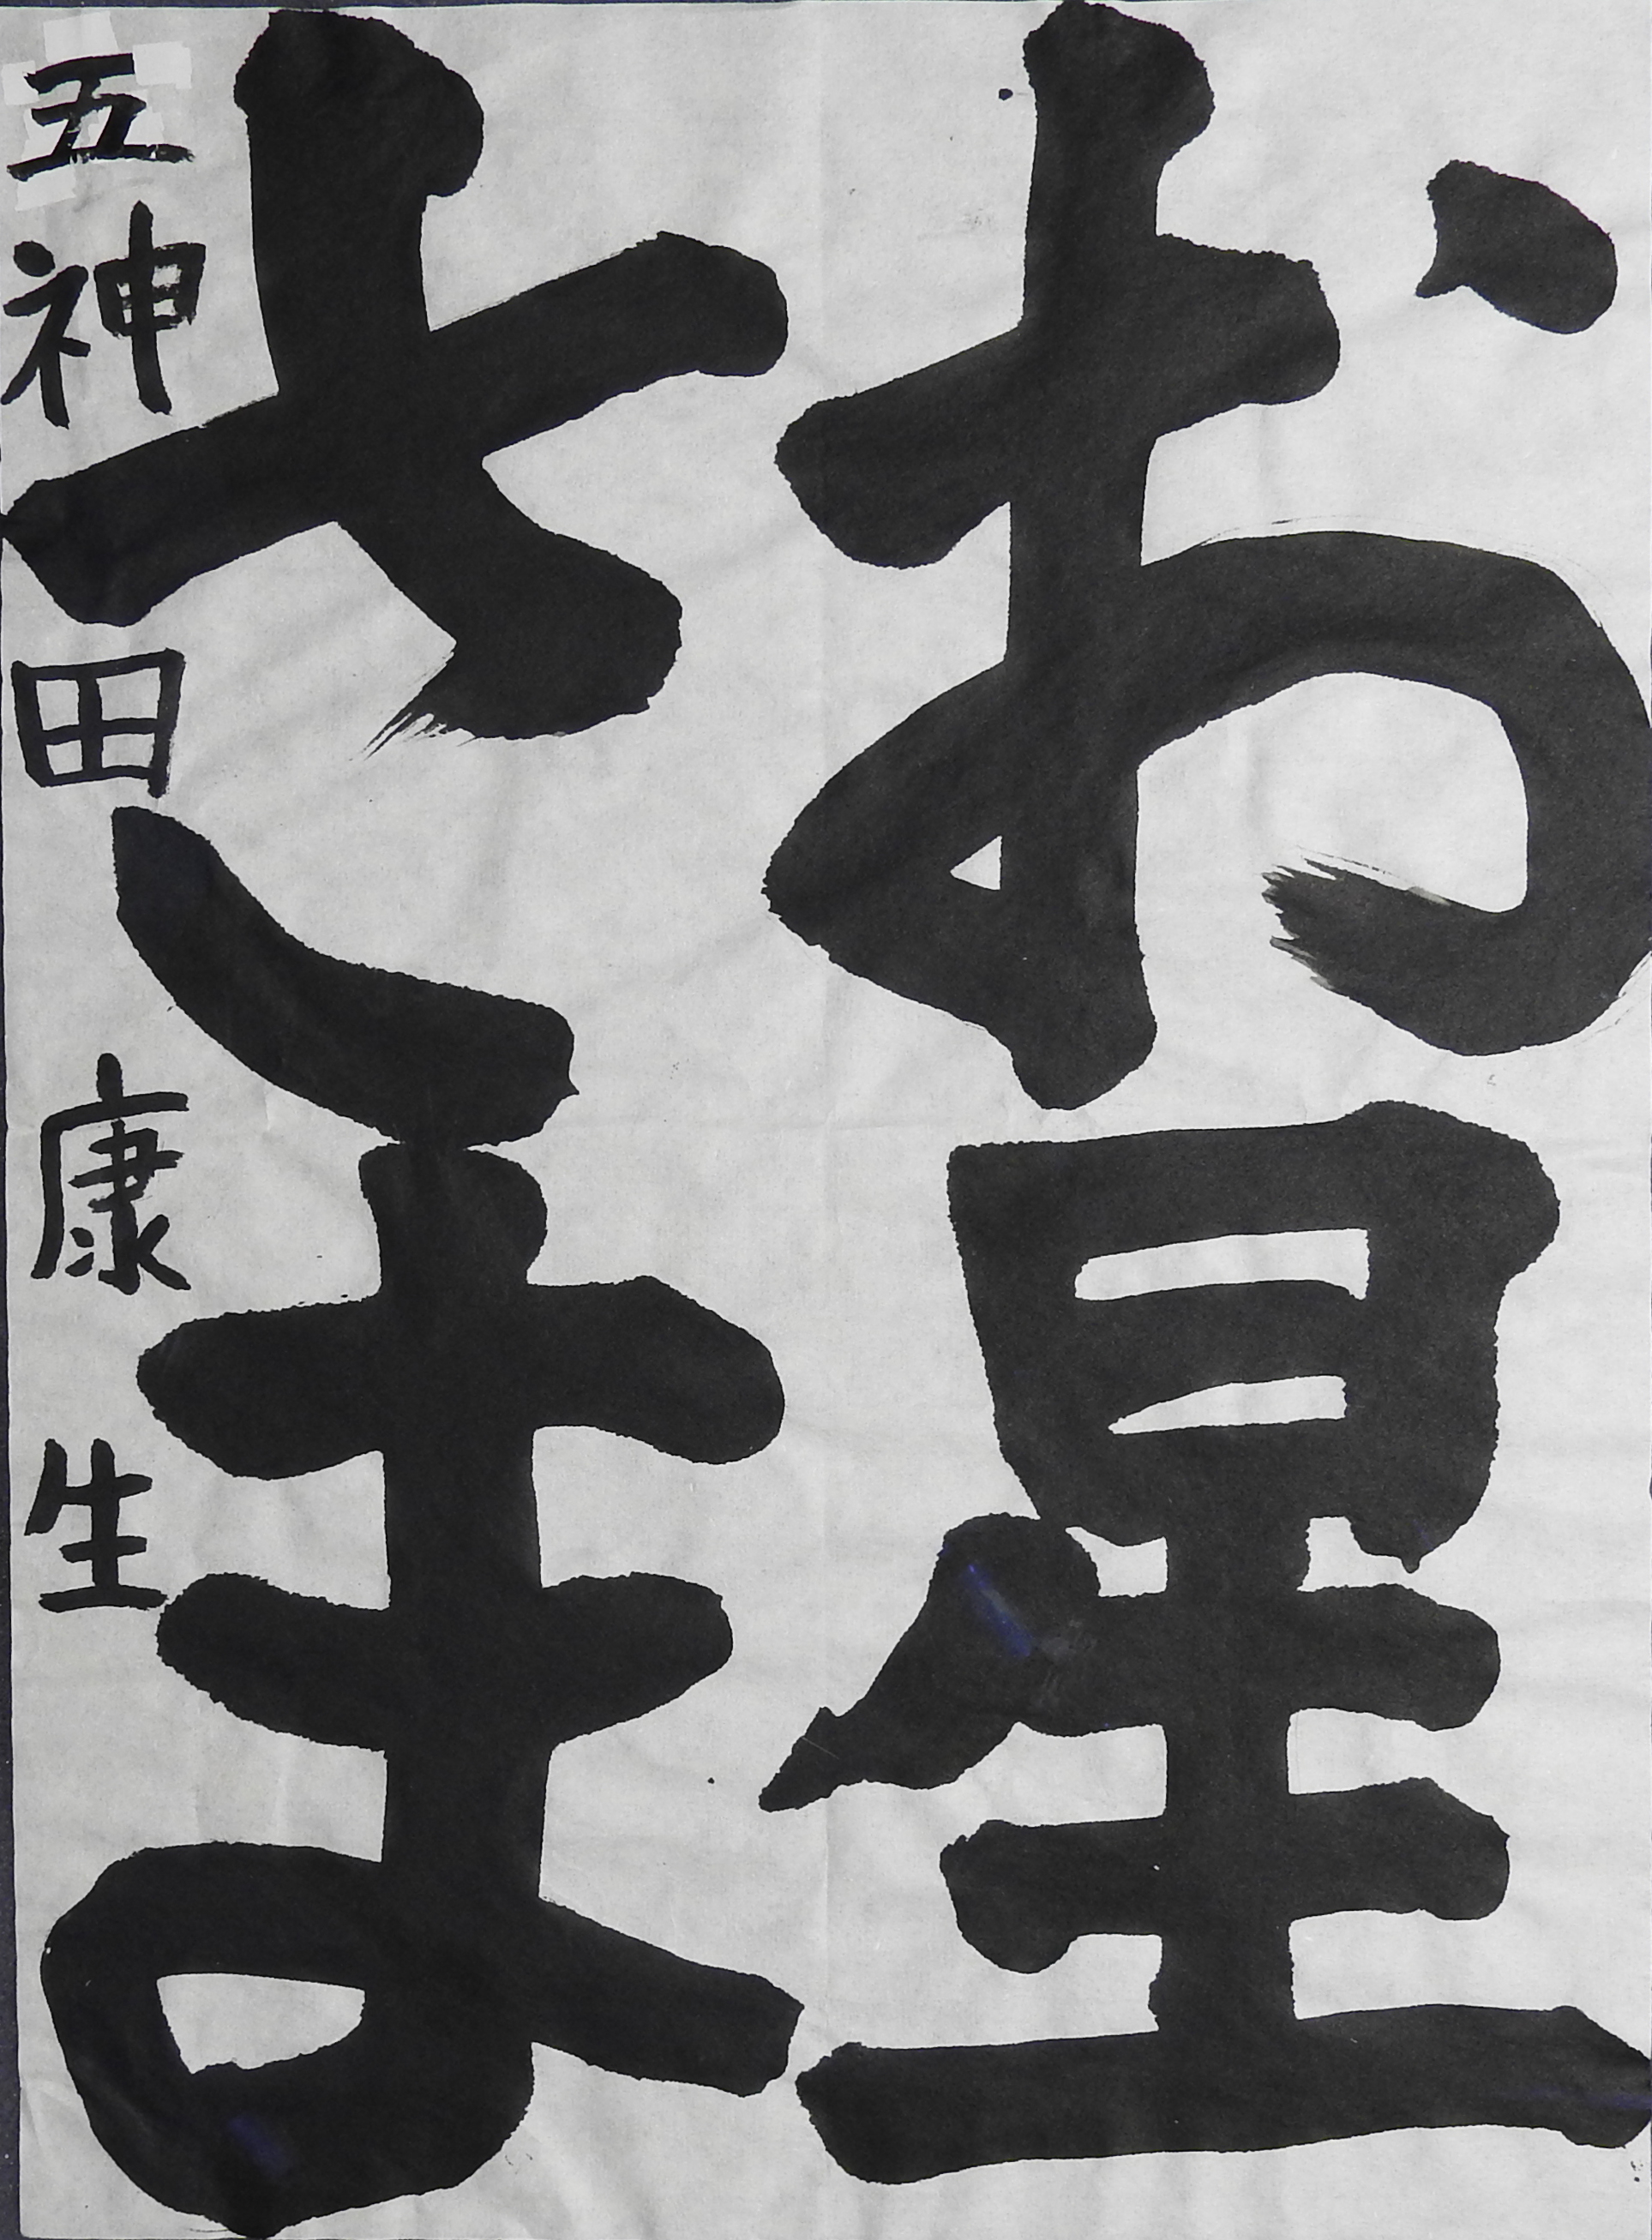 お星
さま
五 神田 康生